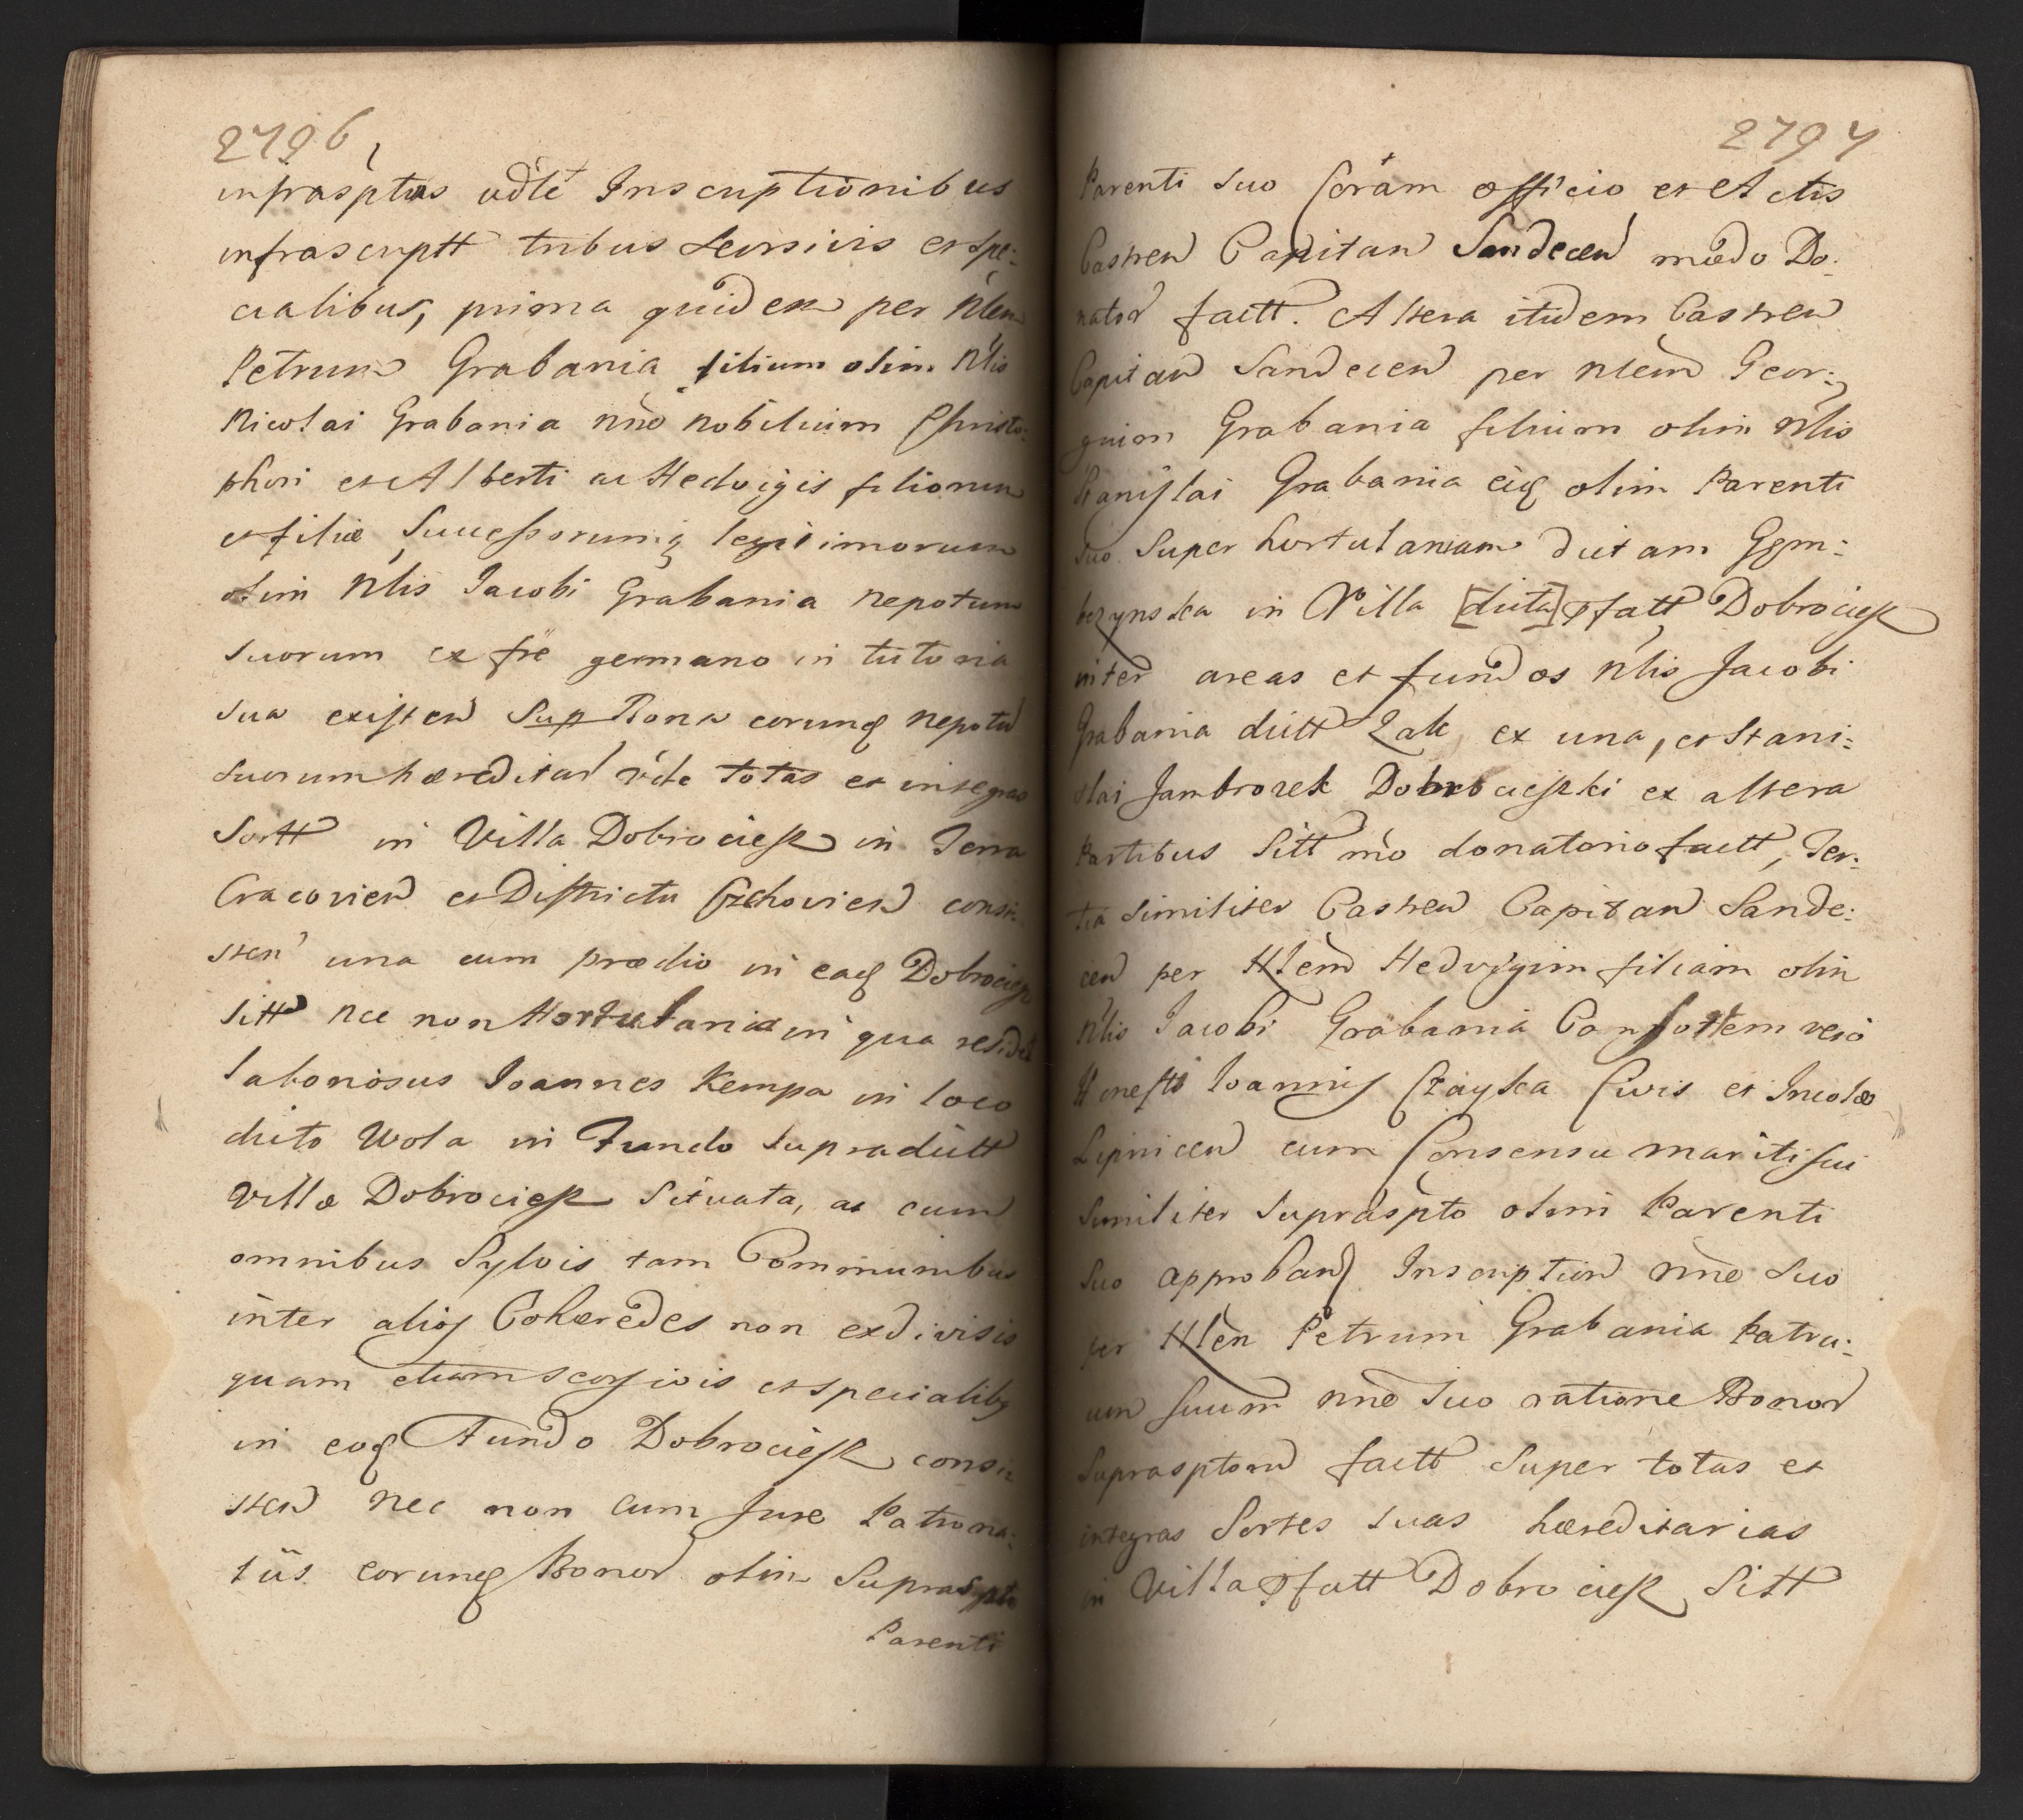 2796
infrasptas vdte Inscriptionibus
infrascriptt tribus seorsivis et spe:
cialibus, prima quidem per Nlem
Petrum Grabania filium olim Nlis
Nicolai Grabania nne nobilium Christo:
phori et Alberti ac Hedvigis filiorum
et filiæ Successorumq legitimorum
olim Nlis Jacobi Grabania nepotum
suorum ex fre germano in tutoria
sua existen Sup Bona eorumq nepotu
suorum hæreditar vdte totas et integras
Sortt in Villa Dobrociesz in Terra
Cracovien et Districtu Czchovien consi:
sten una cum prædio in eaq Dobrociesz
sitt nec non Hortulania in qua residet
laboriosus Joannes Kempa in loco
dicto Wola in Fundo supradictt
Villæ Dobrociesz situata, ac cum
omnibus Sylvis tam Communibus
inter alios Cohæredes non exdivisis
quam etiam seorsivis et specialibus
in eoq Fundo Dobrociesz consi:
sten nec non cum Jure Patrona:
tus eorumq Bonor olim Suprasptto
Parenti
2797
Parenti suo Coram officio et Actis
Castren Capitan Sandecen modo Do:
nator factt. Altera itidem Castren
Capitan Sandecen per Nlem Geor:
gium Grabania filium olim Nlis
Stanislai Grabania eiq olim Parenti
suo super hortulaniam dictam Ggm:
bczynska in Villa [dicta] pfatt Dobrociesz
inter areas et fundos Nlis Jacobi
Grabania dictt Żak ex una, et Stani:
slai Jambrozek Dobrocieszki ex altera
partibus sitt mo donatorio factt, Ter:
tia similiter Castren Capitan Sande:
cen per Nlem Hedvigim filiam olim
Nlis Jacobi Grabania Consortem vero
Honesti Joannis Czayka Civis et Incolæ
Lipnicen cum Consensu mariti sui
similiter suprascpto olim Parenti
suo approband Inscription nne suo
per Nlen Petrum Grabania Patru:
um suum nne suo ratione Bonor
Suprasptorum factt super totas et
integras Sortes suas hæreditarias
in Villa pfatt Dobrociesz sitt